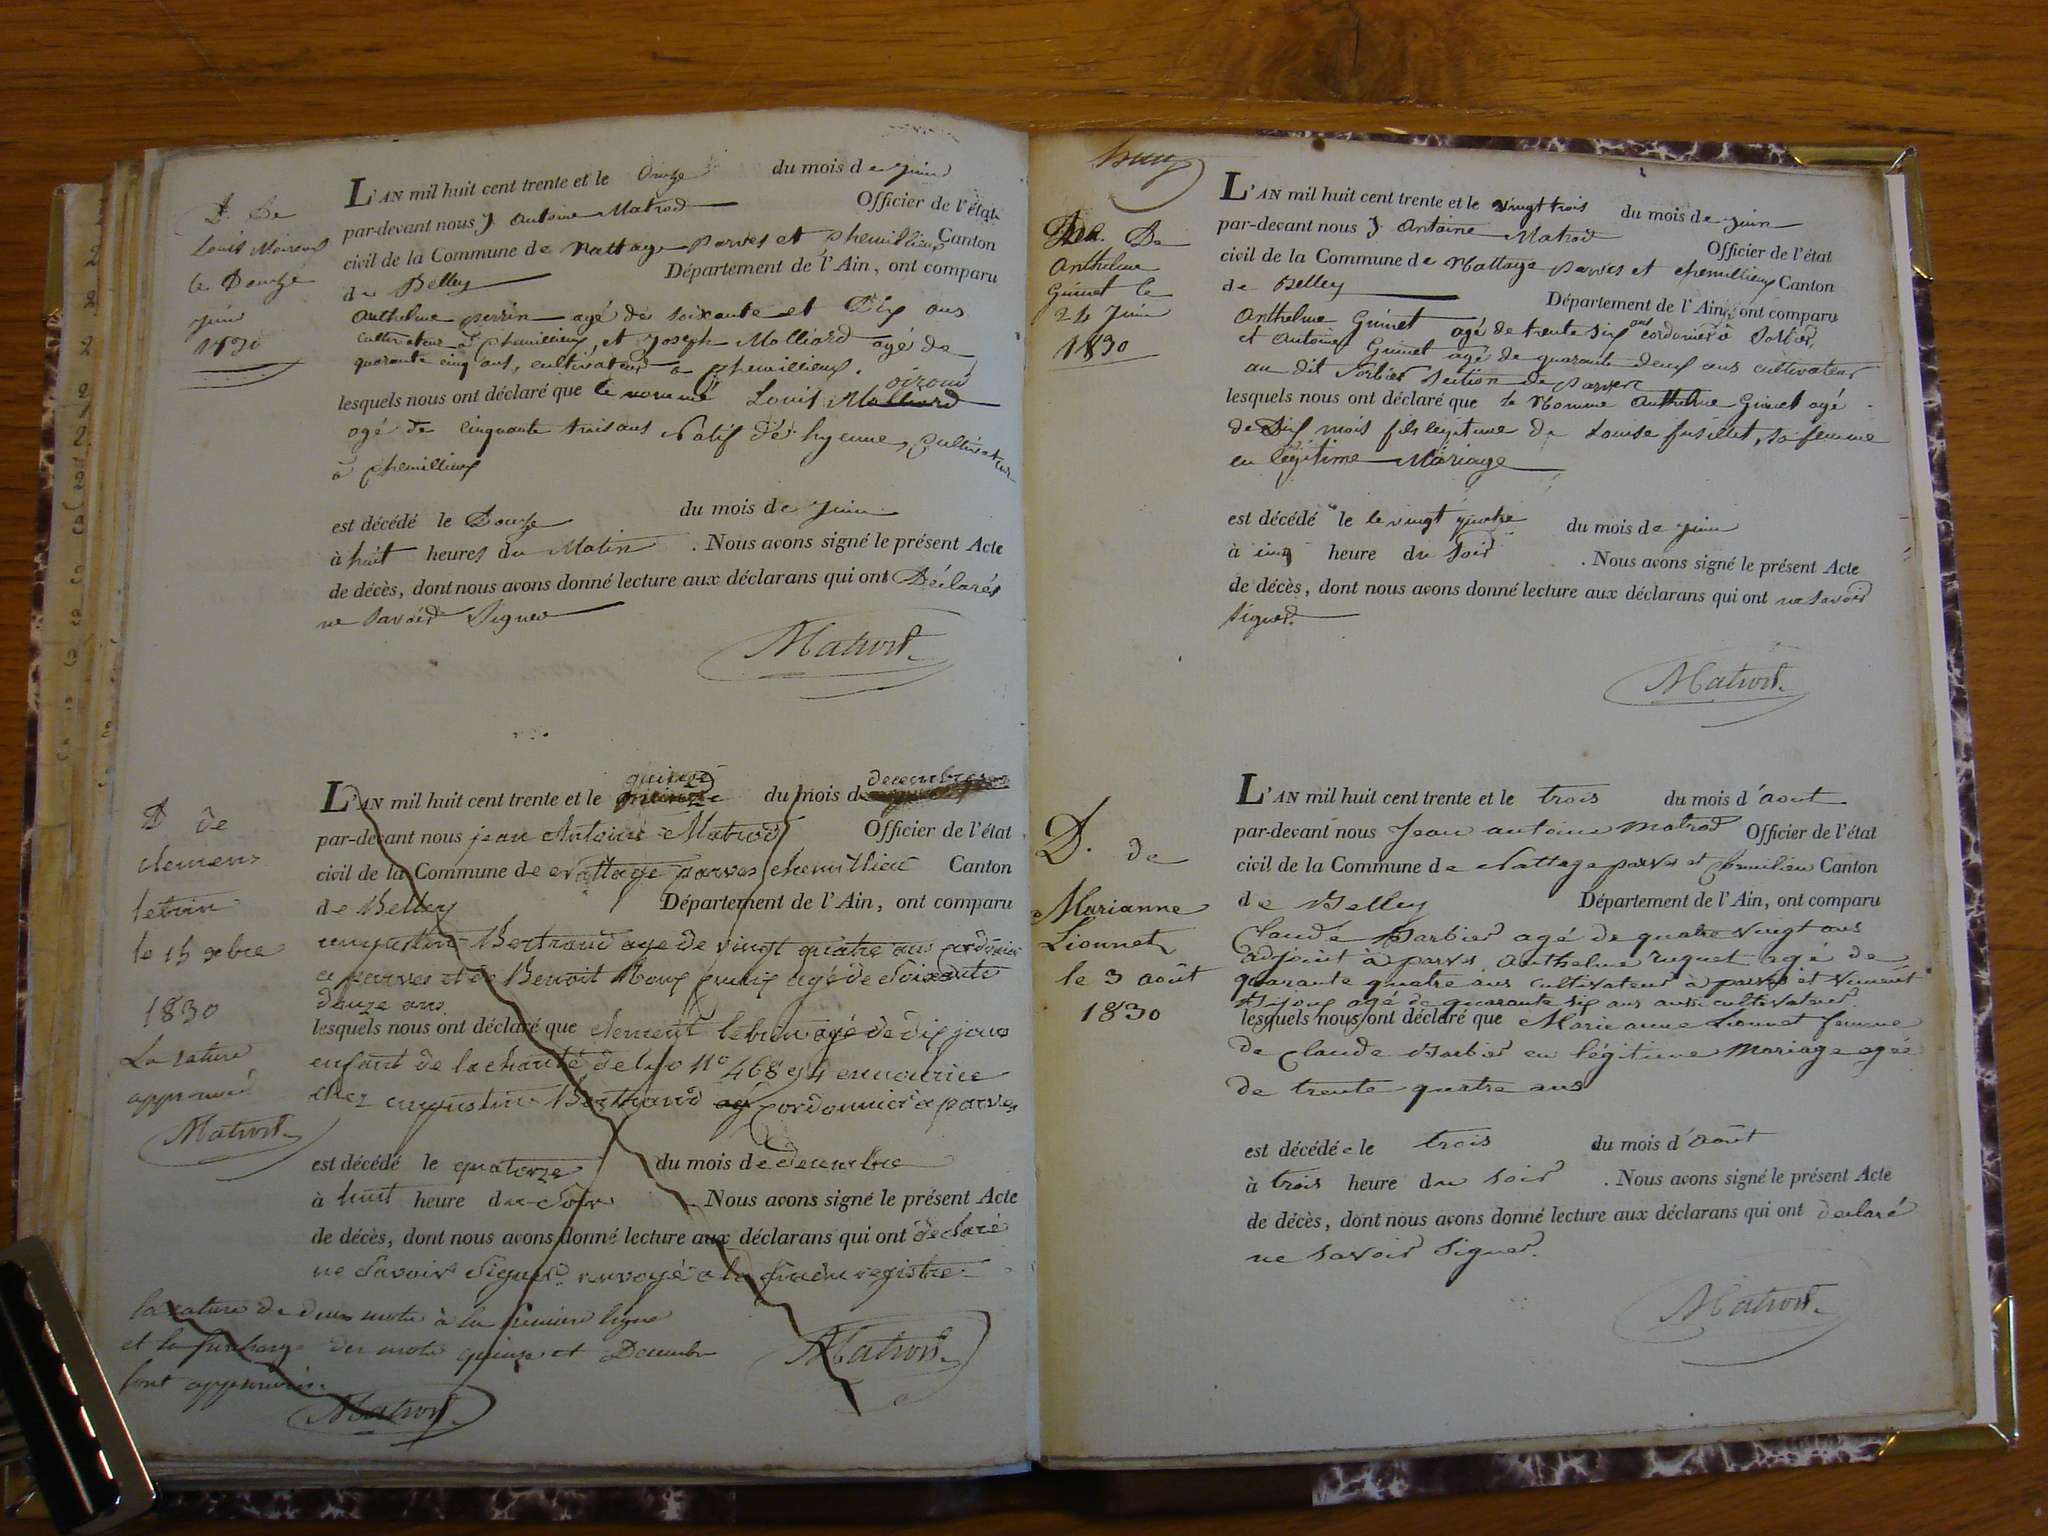 D. De
Louis Moiroud
le Douze
juin
1830
L'AN mil huit cent trente et le Douze du mois de juin
par-devant nous J. Antoine Matrod Officier de l'état
civil de la Commune de Nattage parves et chemillieux Canton
de Belley Département de l'Ain, ont comparu
Anthelme perrin agé de soixante et Dix ans
cultivateur à chemillieux, et Joseph Molliard agé de
quarante cinq ans, cultivateur a chemillieux.
lesquels nous ont déclaré que le nommé Louis Molliard oiroud
agé de cinquante trois ans Natif d'hyenne, Cultivateur
à chemillieux
est décédé le Douze du mois de juin
à huit heures du Matin . Nous avons signé le présent Acte
de décès, dont nous avons donné lecture aux déclarans qui ont Déclarés
ne Savoir Signer
Matrod.
D de
clement
lebrin
le 15 xbre
1830
La rature
approuvé
Matrod.
quinze decembre
L'AN mil huit cent trente et le du mois d
par-devant nous jean Antoine Matrod Officier de l'état
civil de la Commune de Nattage parves chemillieu Canton
de Belley Département de l'Ain, ont comparu
augustin Bertrand age de vingt quatre ans cordonier
a parves et de Benoit Roux agé de Soixante
douze ans
lesquels nous ont déclaré que clement lebrin agé de dix jours
enfant de la charité de N° 46894 en nourice
chez augustin Bertrand ag cordonnier a parves
est décédé le quatorze du mois de decembre
à huit heure du Soir Nous avons signé le présent Acte
de décès, dont nous avons donné lecture aux déclarans qui ont declaré
ne Savoir Signer renvoyé a la fin du registre
la rature de deux mots à la premiere ligne
et la surcharge des mots quinze et Decembre
sont approuvés.
Matrod.
Matrod.
D. De
Anthelme
Guinet le
24 Juin
1830
L'AN mil huit cent trente et le vingt trois du mois de juin
par-devant nous J. Antoine Matrod Officier de l'état
civil de la Commune de Nattage parves et chemillieux Canton
de Belley Département de l'Ain, ont comparu
Anthelme Guinet agé de trente six ans cordonier à Sorbier,
et Antoine Guinet agé de quarante deux ans cultivateur
au dit Sorbier Section de parves
lesquels nous ont déclaré que le Nomme Anthelme Guinet agé
de Six mois fils legitime de Louise fusillet, sa femme
en légitime Mariage
est décédé le le vingt quatre du mois de juin
à cinq heure du Soir . Nous avons signé le présent Acte
de décès, dont nous avons donné lecture aux déclarans qui ont ne Savoir
Signer.
Matrod.
D. de
Marianne
Lionnet
le 3 août
1830
L'AN mil huit cent trente et le trois du mois d'aout
par-devant nous Jean antoine matrod Officier de l'état
civil de la Commune de Nattage parves et chemilieu Canton
de Belley Département de l'Ain, ont comparu
Claude Barbier agé de quatre vingt ans
adjoint à parves anthelme ruguet agé de
quarante quatre ans cultivateur à parves et vincent
agé de quarante six ans aussi cultivateur
lesquels nous ont déclaré que Marie anne Lionnet femme
de Claude Barbier en légitime Mariage agée
de trente quatre ans
est décédée le trois du mois d'août
à trois heure du soir . Nous avons signé le présent Acte
de décès, dont nous avons donné lecture aux déclarans qui ont declaré
ne savoir signer.
Matrod.